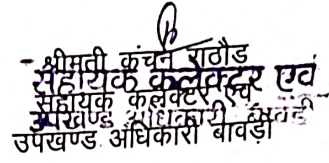 - श्रीमती कंचन राठौड
सहायक कलेक्टर एवं
सहायक कलेक्टर एवं
उपखण्ड अधिकारी बावड़ी
उपखण्ड अधिकारी बावड़ी